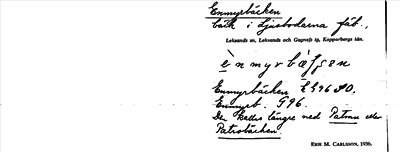 Enmyrbäcken
bäck i Ljusbodarna fäb.,
Leksands sn, Leksands och Gagnefs tg, Kopparbergs län.
ènmyrbäʃʃen
Enmyrbäcken
Enmyrb. G96.
Den kallas längre ned Patron eller
Patrobäcken
ERIK M. CARLSSON, 1930.